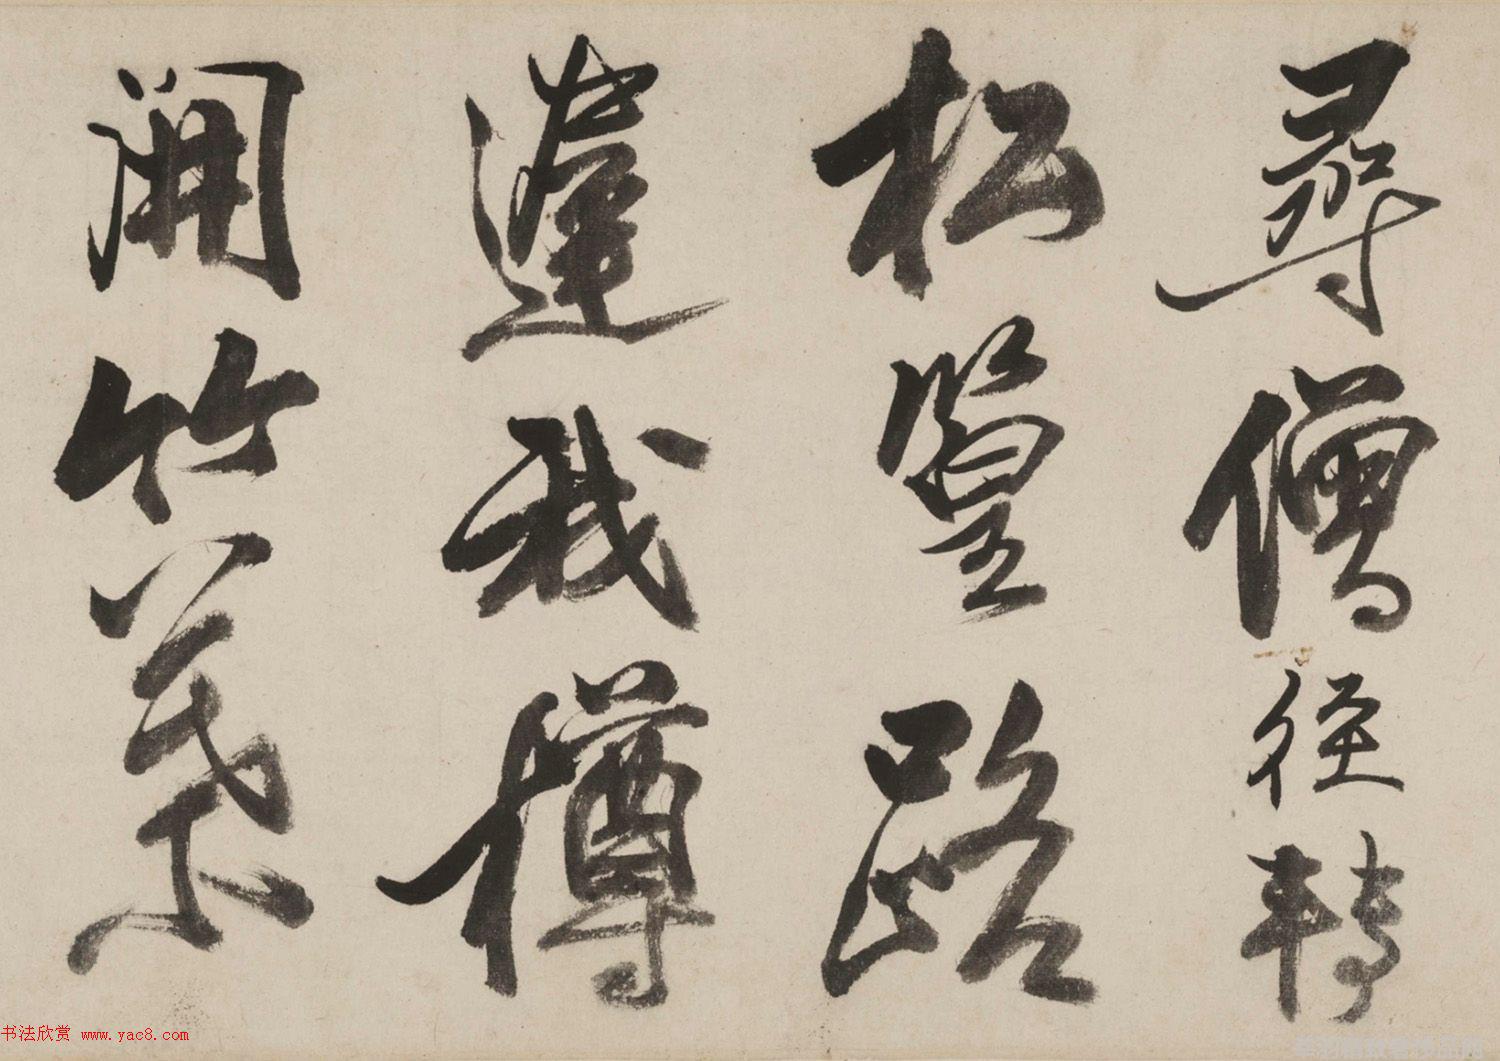 尋僧徑轉
松篁路
逢我樽
開竹葉
书法欣赏 www.yac8.com